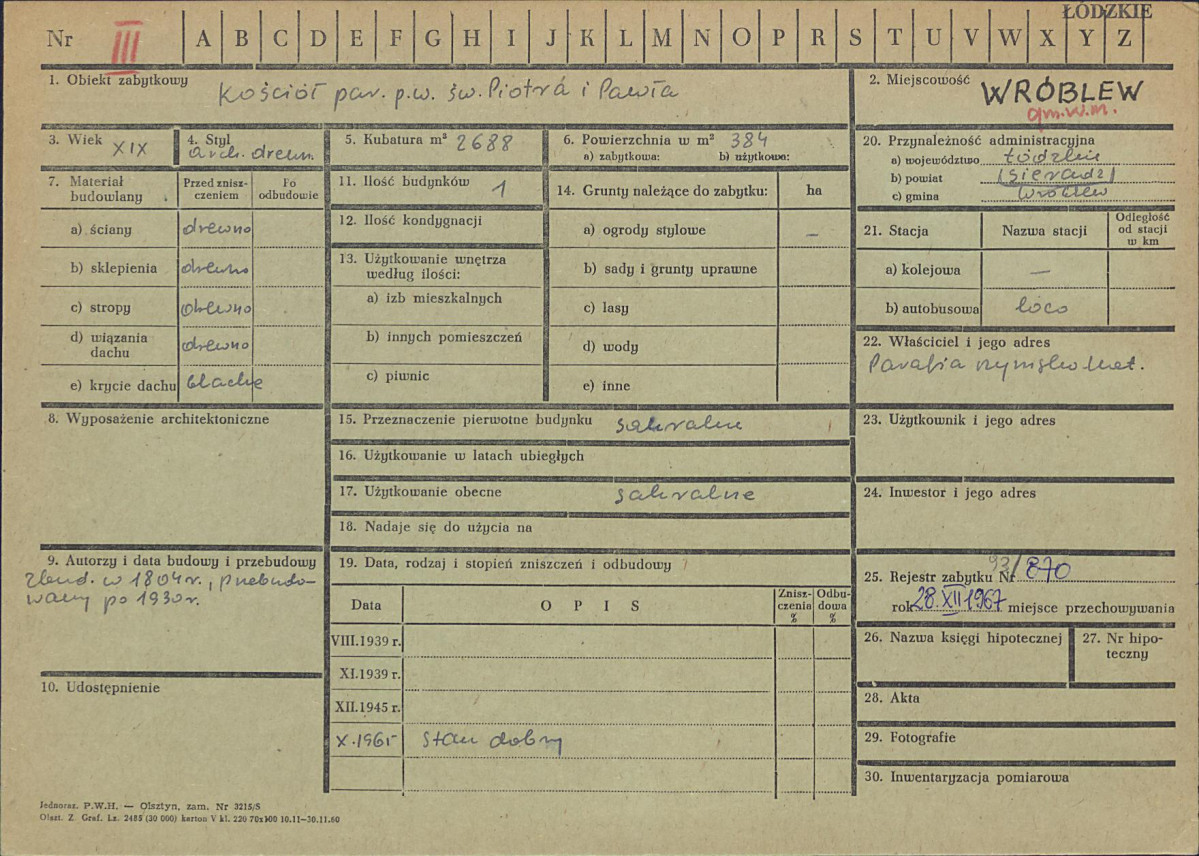 ŁÓDZKIE
Nr III A B C D E F G H I J K L M N O P R S T U V W X Y Z
1. Obiekt zabytkowy Kościół par. p.w. św. Piotra i Pawła
2. Miejscowość WRÓBLEW
gm.w.m.
3. Wiek XIX
4. Styl arch. drewn.
5. Kubatura m³ 2688
6. Powierzchnia w m² 384
a) zabytkowa: b) użytkowa:
7. Materiał budowlany
Przed znisz-
czeniem
Po
odbudowie
a) ściany drewno
b) sklepienia drewno
c) stropy drewno
d) wiązania
dachu drewno
e) krycie dachu blacha
8. Wyposażenie architektoniczne
9. Autorzy i data budowy i przebudowy
Zbud. w 1804 r., przebudo-
wany po 1930 r.
10. Udostępnienie
11. Ilość budynków 1
12. Ilość kondygnacji
13. Użytkowanie wnętrza
według ilości:
a) izb mieszkalnych
b) innych pomieszczeń
c) piwnic
14. Grunty należące do zabytku: ha
a) ogrody stylowe –
b) sady i grunty uprawne
c) lasy
d) wody
e) inne
15. Przeznaczenie pierwotne budynku sakralne
16. Użytkowanie w latach ubiegłych
17. Użytkowanie obecne sakralne
18. Nadaje się do użycia na
19. Data, rodzaj i stopień zniszczeń i odbudowy
Data OPIS
Znisz-
czenia
%
Odbu-
dowa
%
VIII.1939 r.
XI.1939 r.
XII.1945 r.
X.1965 stan dobry
20. Przynależność administracyjna
a) województwo łódzkie
b) powiat (sieradz)
c) gmina Wróblew
21. Stacja Nazwa stacji
Odległość
od stacji
w km
a) kolejowa —
b) autobusowa loco
22. Właściciel i jego adres
Parafia rzymsko kat.
23. Użytkownik i jego adres
24. Inwestor i jego adres
25. Rejestr zabytku Nr 93/870
rok 28.XII 1967 miejsce przechowywania
26. Nazwa księgi hipotecznej
27. Nr hipo-
teczny
28. Akta
29. Fotografie
30. Inwentaryzacja pomiarowa
Jednoraz. P.W.H. — Olsztyn, zam. Nr 3215/S
Olszt. Z. Graf. Lz. 2485 (30 000) karton V kl. 220 70x100 10.11—30.11.60